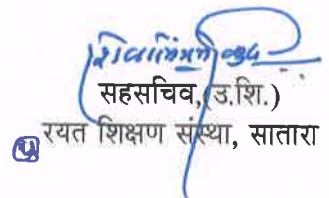 सहसचिव,(उ.शि.)
रयत शिक्षण संस्था, सातारा